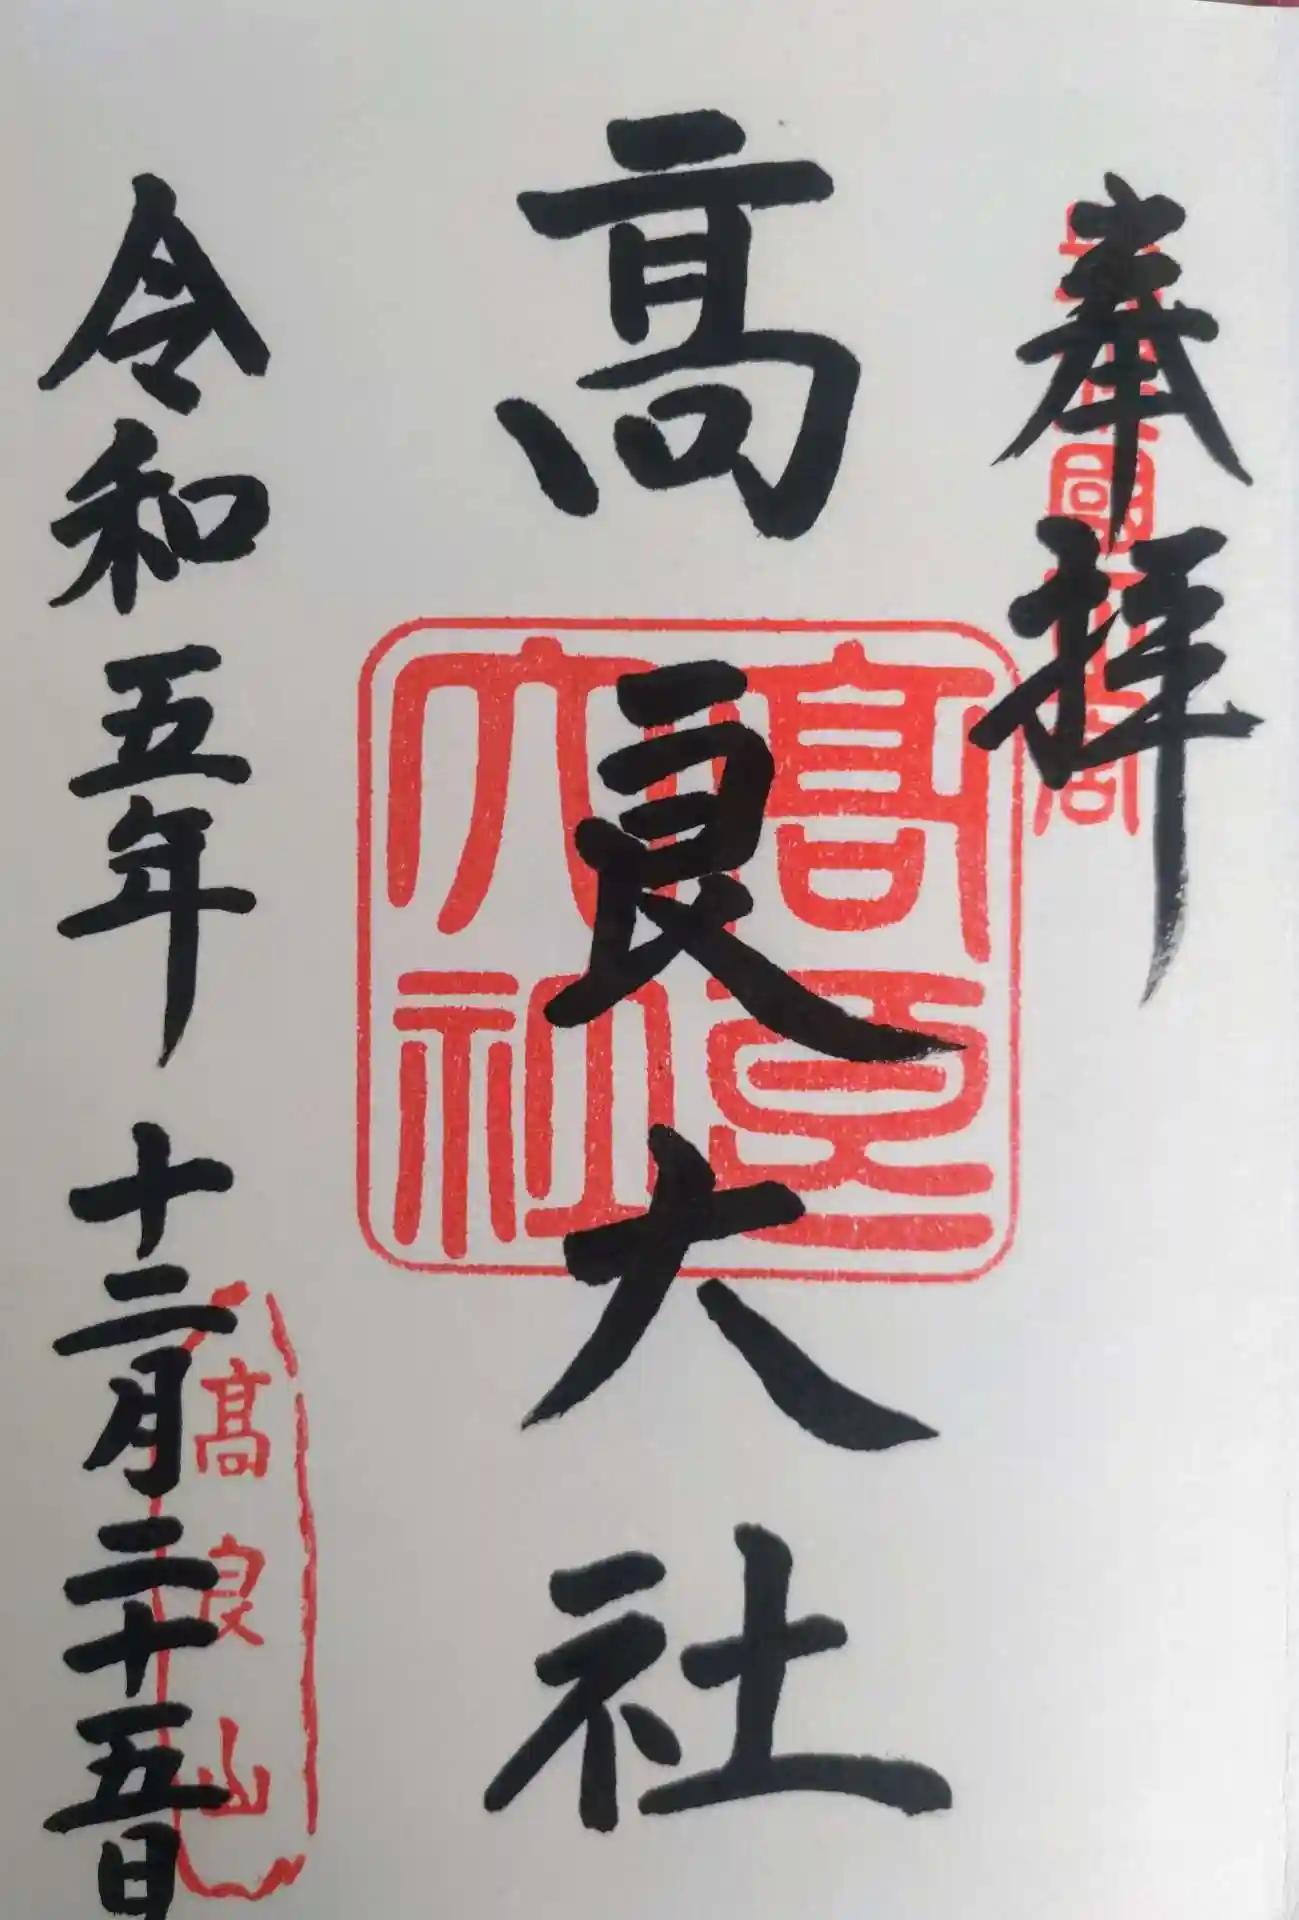 奉拝
高良大社
高良大社
令和五年 十二月二十五日
高良山